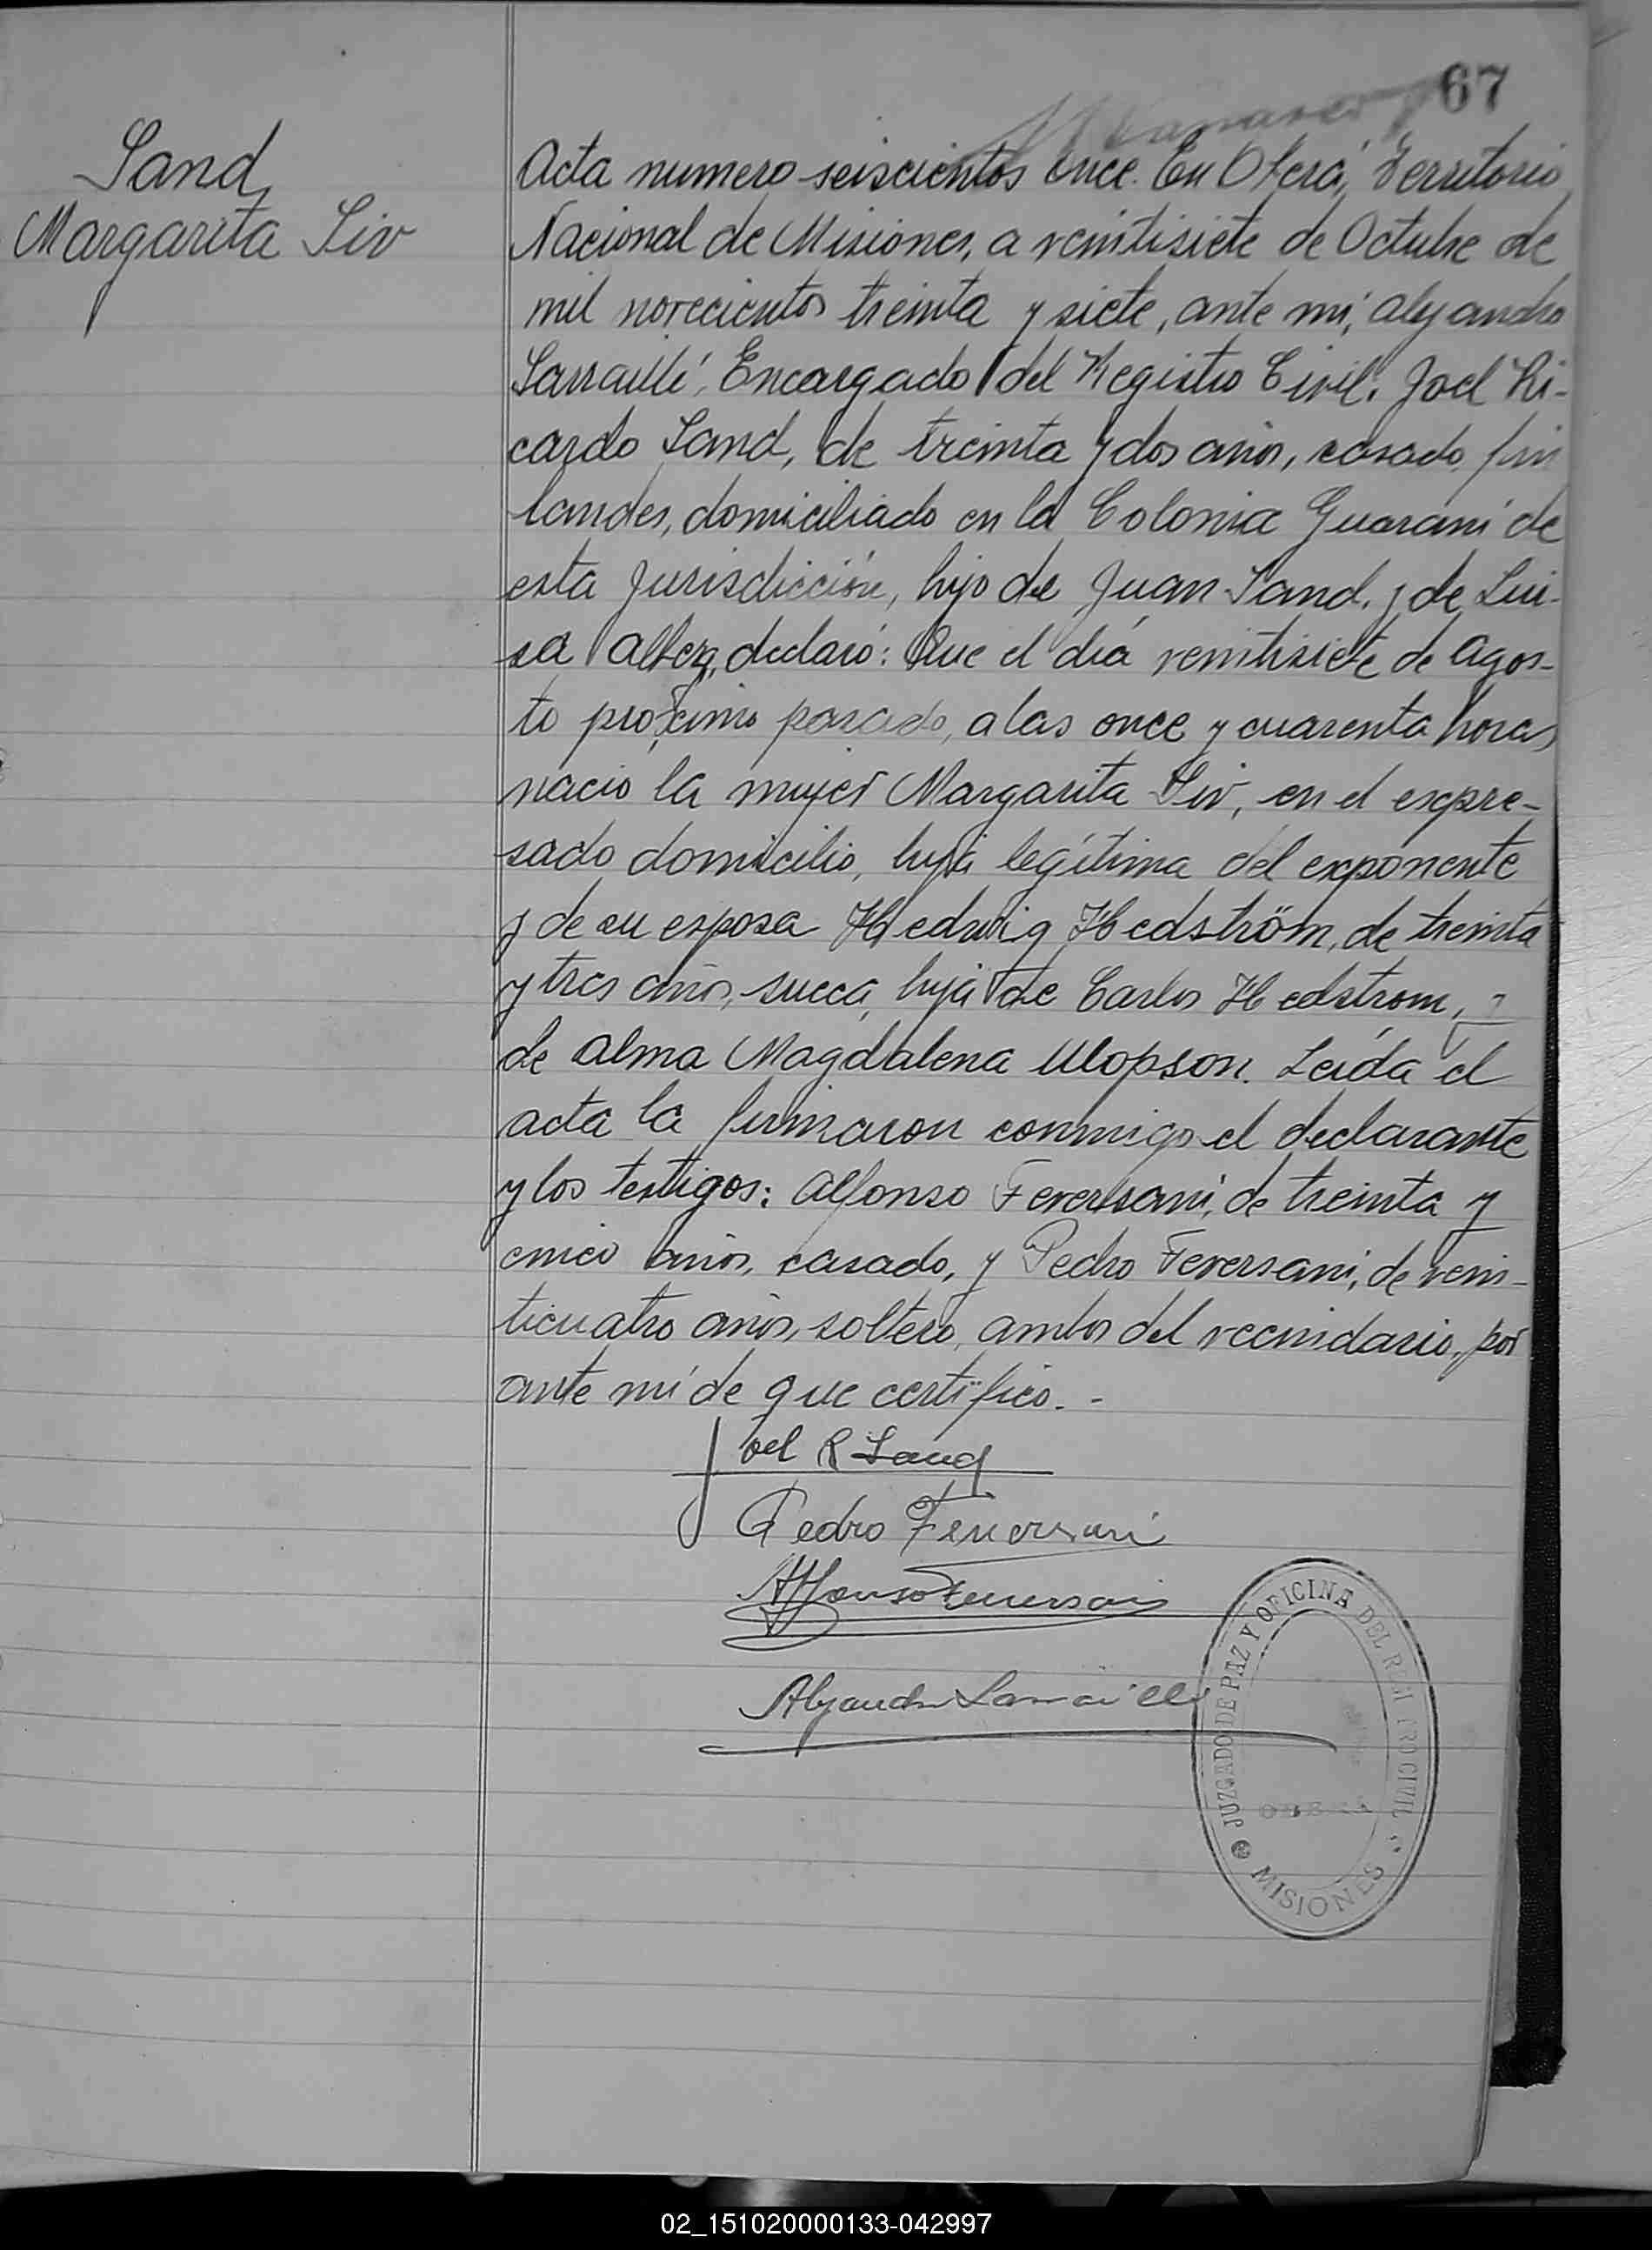 67
Sand,
Margarita Siv
Acta numero seiscientos once. En Oberá, Territorio
Nacional de Misiones, a veintisiete de Octubre de
mil novecientos treinta y siete, ante mí, Alejandro
Sarraillé, Encargado del Registro Civil: Joel Ri-
cardo Sand, de treinta y dos años, casado, fin
landes, domiciliado en la Colonia Guaraní de
esta Jurisdicción, hijo de Juan Sand, y de Lui-
sa declaró: Que el día veintisiete de Agos-
to próximo pasado, a las once y cuarenta horas,
nació la mujer Margarita Siv, en el expre-
sado domicilio, hija legítima del exponente
y de su esposa Hedwig Hedström, de treinta
y tres años, sueca, hija de Carlos Hedstrom, y
de Alma Magdalena Leída el
acta la firmaron conmigo el declarante
y los testigos: Alfonso Feversani, de treinta y
cinco años, casado, y Pedro Feversani, de vein-
ticuatro años, soltero, ambos del vecindario, por
ante mí de que certifico. -
Joel R Sand
Pedro Feversani
Alfonso Feversani
Alejandro Sarraillé
JUZGADO DE PAZ Y OFICINA DEL REGISTRO CIVIL
MISIONES
02_151020000133-042997